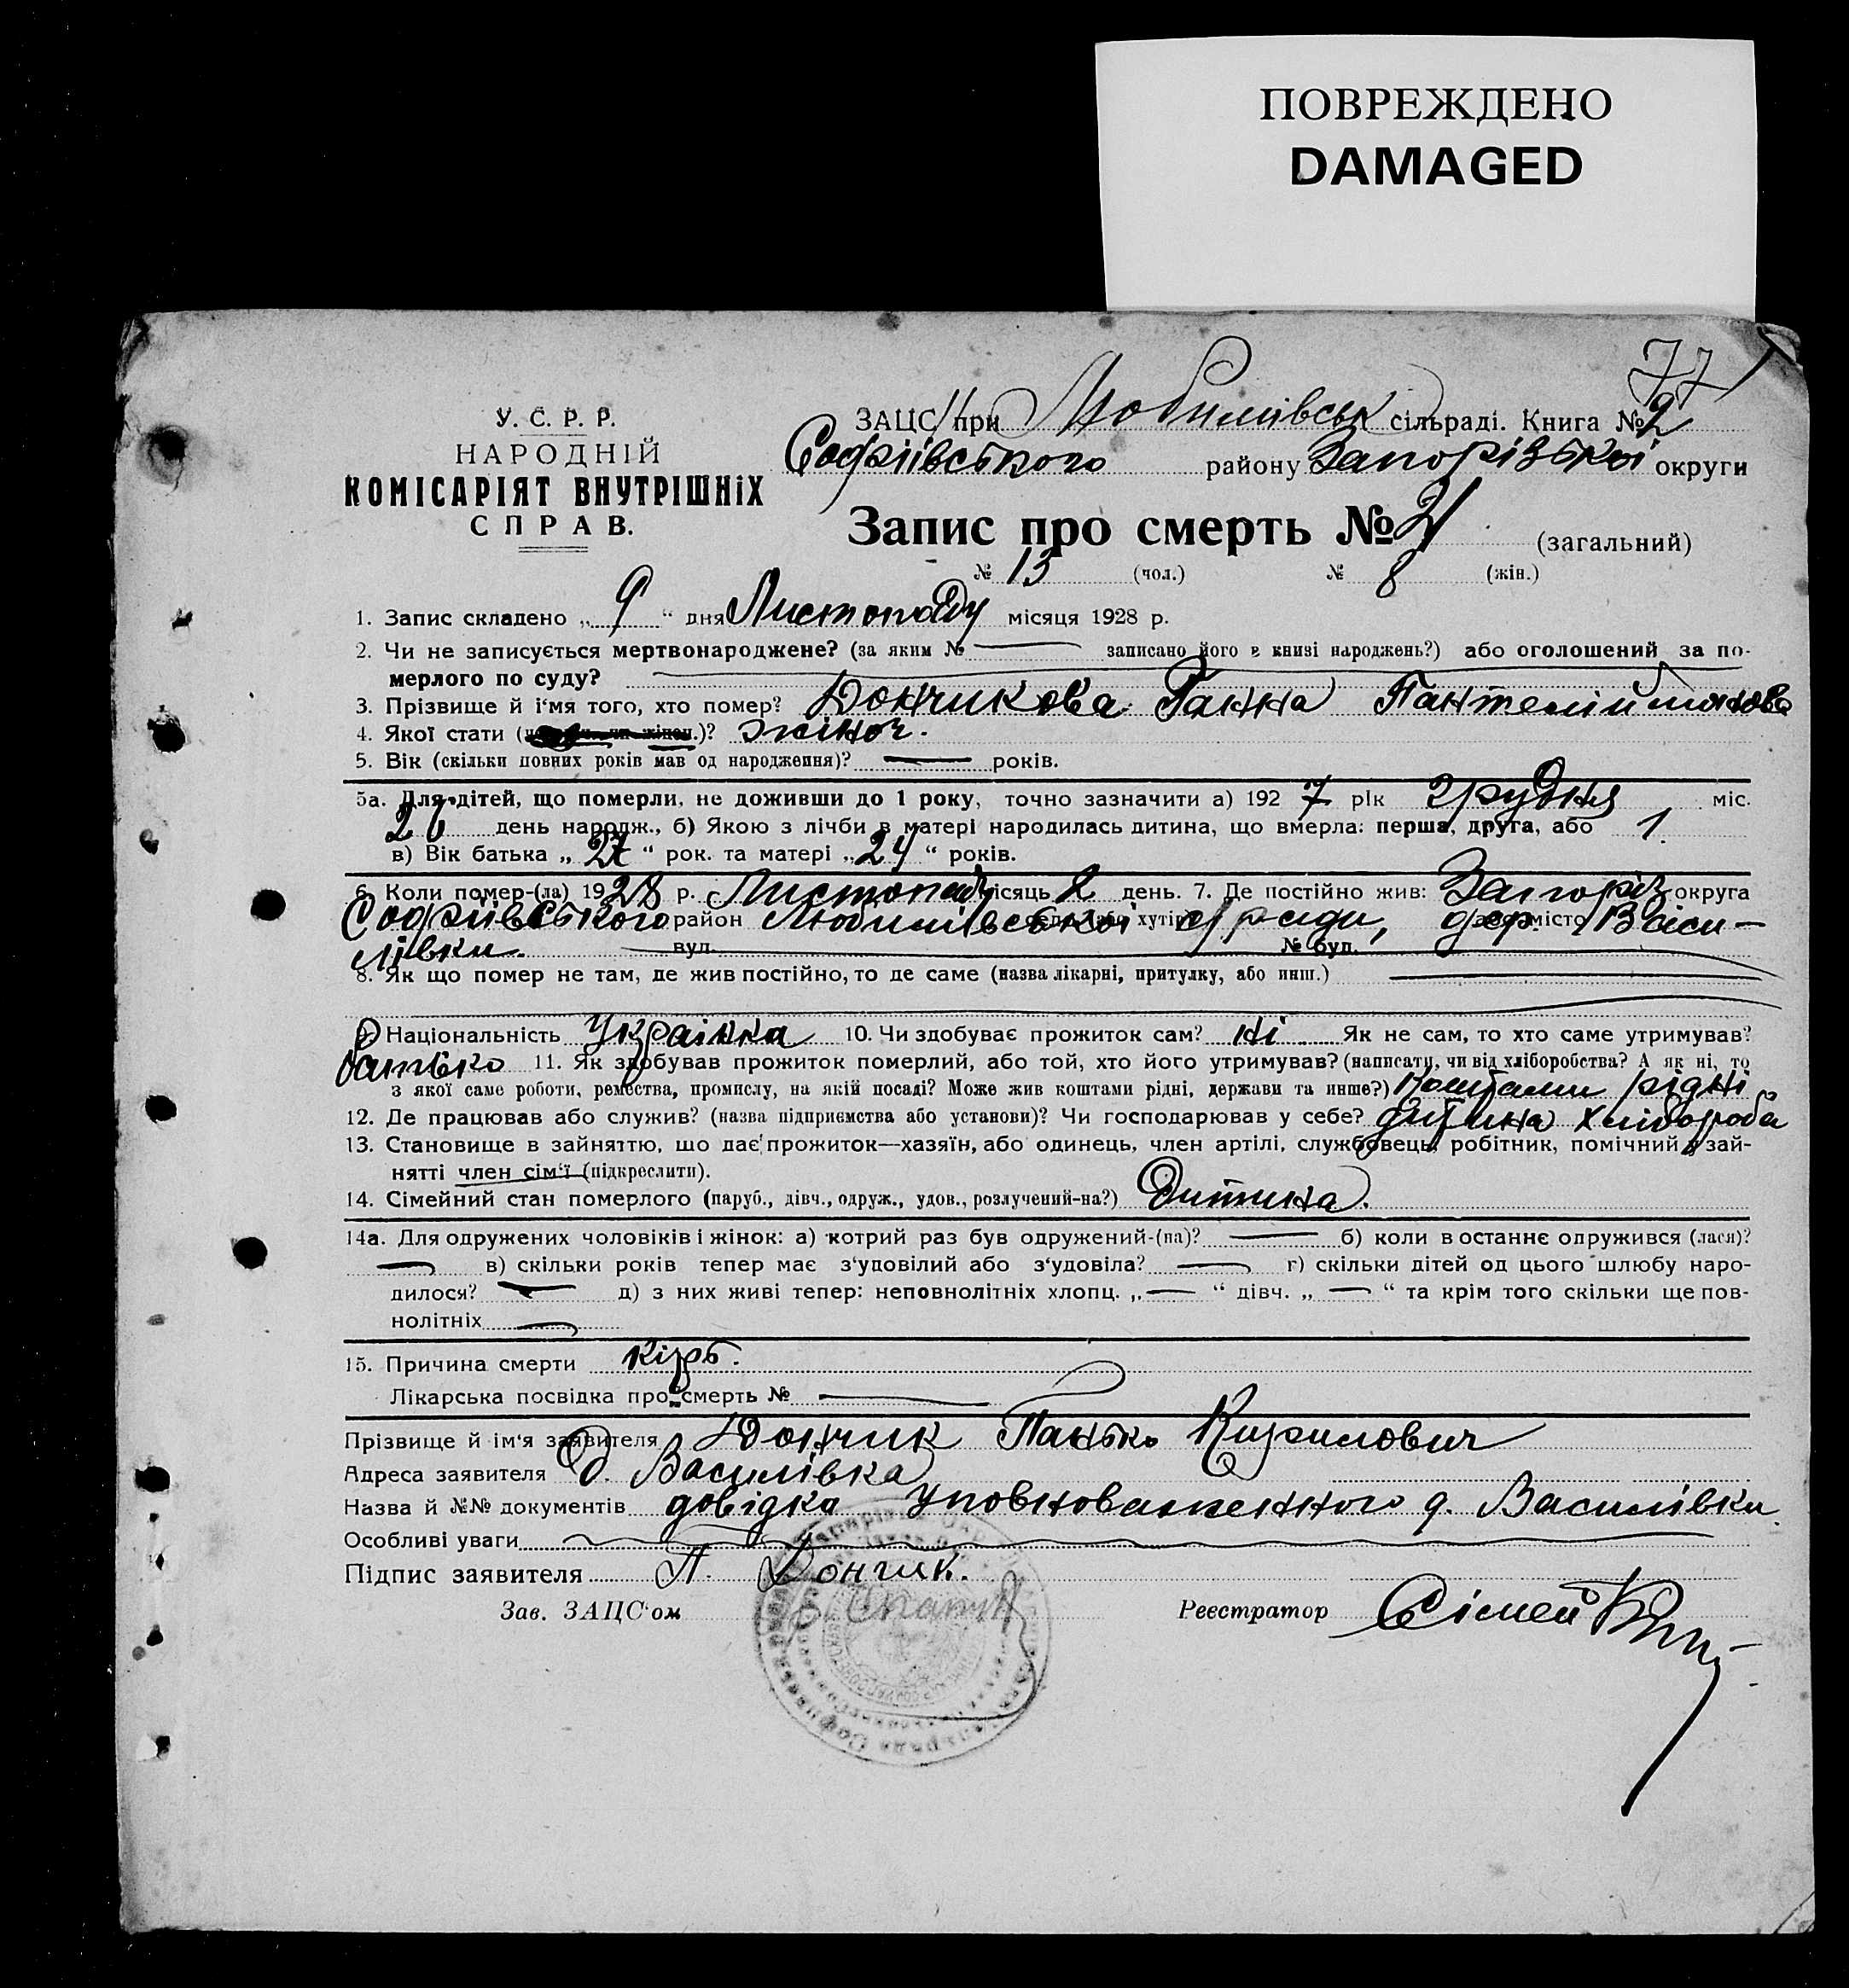 ПОВРЕЖДЕНО
DAMAGED
77
У. С. Р. Р.
НАРОДНІЙ
КОМІСАРІЯТ ВНУТРІШНІХ
СПРАВ.
ЗАЦС при Любимівськ сільраді. Книга № 2
Софіївського району Запорізької округи
Запис про смерть № 21 (загальний)
№ 13 (чол.) № 8 (жін.)
1. Запис складено „ 9 “ дня Листопаду місяця 1928 р.
2. Чи не записується мертвонароджене? (за яким № — записано його в книзі народжень?) або оголошений за по-
мерлого по суду?
3. Прізвище й і‘мя того, хто помер? Дончикова Ганна Пантелій
4. Якої стати ( жіноч.)? жіноч.
5. Вік (скільки повних років мав од народження)? — років.
5а. Для дітей, що померли, не доживши до 1 року, точно зазначити а) 192 7 рік грудня міс.
26 день народж., б) Якою з лічби в матері народилась дитина, що вмерла: перша, друга, або 1.
в) Вік батька „ 27 “ рок. та матері „ 24 “ років.
6. Коли помер-(ла) 1928 р. Листопад місяць 2 день. 7. Де постійно жив: Запоріз округа
Софіївського район Любимівської с/ради, дер. або місто Васи-
лівки. вул. № буд.
8. Як що помер не там, де жив постійно, то де саме (назва лікарні, притулку, або инш.)
9. Національність Українка 10. Чи здобуває прожиток сам? ні Як не сам, то хто саме утримував?
батько 11. Як здобував прожиток померлий, або той, хто його утримував? (написати, чи від хліборобства? А як ні, то
з якої саме роботи, ремества, промислу, на якій посаді? Може жив коштами рідні, держави та инше?) Коштами рідні
12. Де працював або служив? (назва підприємства або установи)? Чи господарював у себе? дитина хлібороба
13. Становище в зайняттю, що дає прожиток—хазяїн, або одинець, член артілі, службовець, робітник, помічний в зай-
нятті член сім‘ї (підкреслити).
14. Сімейний стан померлого (паруб., дівч., одруж., удов., розлучений-на?) Дитина.
14а. Для одружених чоловіків і жінок: а) котрий раз був одружений-(на)? — б) коли в останнє одружився (лася)?
— в) скільки років тепер має з‘удовілий або з‘удовіла? — г) скільки дітей од цього шлюбу наро-
дилося? — д) з них живі тепер: неповнолітніх хлопц. „ — “ дівч. „ — “ та крім того скільки ще пов-
нолітніх —
15. Причина смерти кір.
Лікарська посвідка про смерть № —
Прізвище й ім‘я заявителя Дончик Панько Кирилович
Адреса заявителя д. Василівка
Назва й №№ документів довідка уповноваженного д. Василівки.
Особливі уваги
Підпис заявителя П. Дончик.
Зав. ЗАЦС‘ом Реєстратор